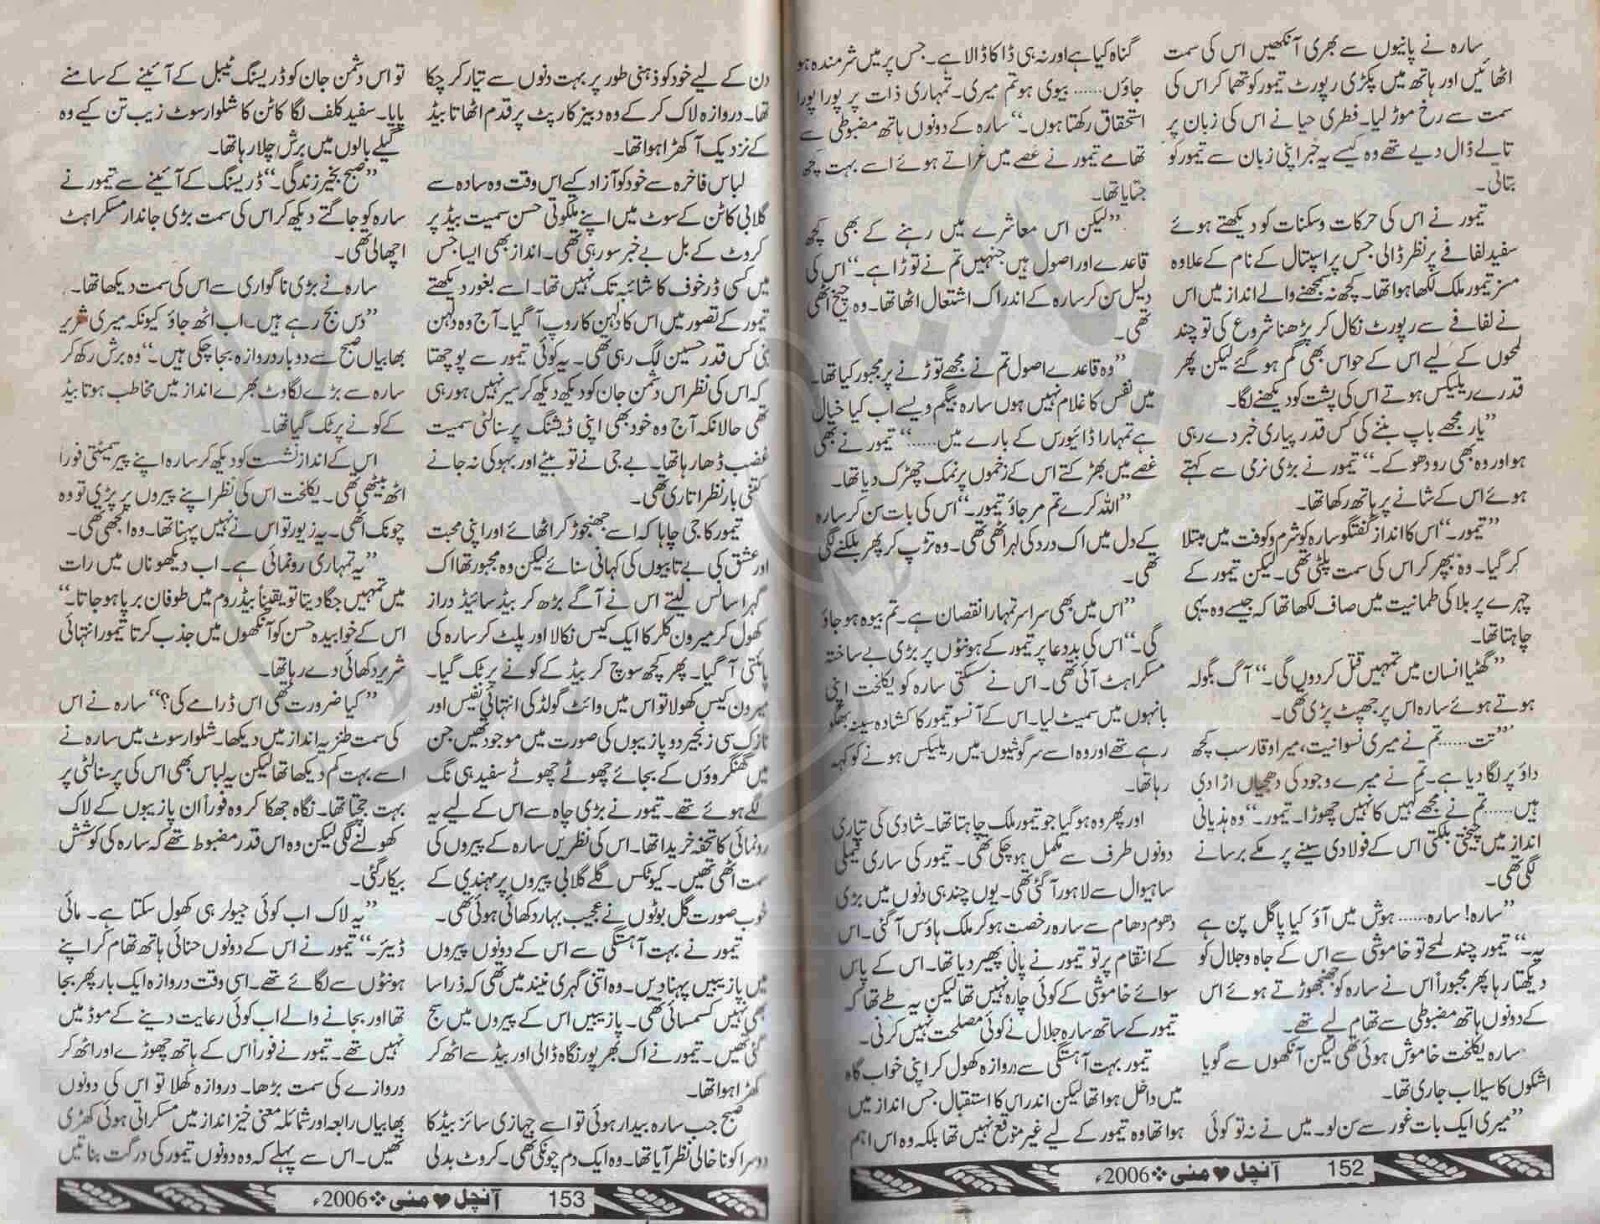 سارہ نے پانیوں سے بھری آنکھیں اس کی سمت
اٹھائیں اور ہاتھ میں پکڑی رپورٹ تیمور کو تھما کر اس کی
سمت سے رخ موڑ لیا۔ فطری حیا نے اس کی زبان پر
تالے ڈال دیے تھے وہ کیسے یہ خبر اپنی زبان سے تیمور کو
بتاتی۔
تیمور نے اس کی حرکات و سکنات کو دیکھتے ہوئے
سفید لفافے پر نظر ڈالی جس پر اسپتال کے نام کے علاوہ
مسز تیمور ملک لکھا ہوا تھا۔ کچھ نہ سمجھنے والے انداز میں اس
نے لفافے سے رپورٹ نکال کر پڑھنا شروع کی تو چند
لمحوں کے لیے اس کے حواس بھی گم ہو گئے لیکن پھر
قدرے ریلیکس ہوتے اس کی پشت کو دیکھنے لگا۔
”یار مجھے باپ بننے کی کس قدر پیاری خبر دے رہی
ہو اور وہ بھی رو دھو کے۔“ تیمور نے بڑی نرمی سے کہتے
ہوئے اس کے شانے پر ہاتھ رکھا تھا۔
”تیمور۔“ اس کا انداز گفتگو سارہ کو شرم و کوفت میں مبتلا
کر گیا۔ وہ بپھر کر اس کی سمت پلٹی تھی۔ لیکن تیمور کے
چہرے پر بلا کی طمانیت میں صاف لکھا تھا کہ جیسے وہ یہی
چاہتا تھا۔
”گھٹیا انسان میں تمہیں قتل کر دوں گی۔“ آگ بگولہ
ہوتے ہوئے سارہ اس پر جھپٹ پڑی تھی۔
”تت...... تم نے میری نسوانیت، میرا وقار سب کچھ
داؤ پر لگا دیا ہے۔ تم نے میرے وجود کی دھجیاں اڑا دی
ہیں...... تم نے مجھے کہیں کا نہیں چھوڑا۔ تیمور۔“ وہ ہذیانی
انداز میں چیختی بلکتی اس کے فولادی سینے پر مکے برسانے
لگی تھی۔
”سارہ! سارہ...... ہوش میں آؤ کیا پاگل پن ہے
یہ۔“ تیمور چند لمحے تو خاموشی سے اس کے جاہ و جلال کو
دیکھتا رہا پھر مجبوراً اس نے سارہ کو جھنجھوڑتے ہوئے اس
کے دونوں ہاتھ مضبوطی سے تھام لیے تھے۔
سارہ یکلخت خاموش ہوئی تھی لیکن آنکھوں سے گویا
اشکوں کا سیلاب جاری تھا۔
”میری ایک بات غور سے سن لو۔ میں نے نہ تو کوئی
گناہ کیا ہے اور نہ ہی ڈاکا ڈالا ہے۔ جس پر میں شرمندہ ہو
جاؤں...... بیوی ہو تم میری۔ تمہاری ذات پر پورا پورا
استحقاق رکھتا ہوں۔“ سارہ کے دونوں ہاتھ مضبوطی سے
تھامے تیمور نے غصے میں غراتے ہوئے اسے بہت کچھ
جتایا تھا۔
”لیکن اس معاشرے میں رہنے کے بھی کچھ
قاعدے اور اصول ہیں جنہیں تم نے توڑا ہے۔“ اس کی
دلیل سن کر سارہ کے اندر اک اشتعال اٹھا تھا۔ وہ چیخ اٹھی
تھی۔
”وہ قاعدے اصول تم نے مجھے توڑنے پر مجبور کیا تھا۔
میں نفس کا غلام نہیں ہوں سارہ بیگم ویسے اب کیا خیال
ہے تمہارا ڈائیورس کے بارے میں......“ تیمور نے بھی
غصے میں بھڑکتے اس کے زخموں پر نمک چھڑک دیا تھا۔
”اللہ کرے تم مر جاؤ تیمور۔“ اس کی بات سن کر سارہ
کے دل میں اک درد کی لہر اٹھی تھی۔ وہ تڑپ کر پھر بلکنے لگی
تھی۔
”اس میں بھی سراسر تمہارا نقصان ہے۔ تم بیوہ ہو جاؤ
گی۔“ اس کی بددعا پر تیمور کے ہونٹوں پر بڑی بے ساختہ
مسکراہٹ آئی تھی۔ اس نے سسکتی سارہ کو یکلخت اپنی
بانہوں میں سمیٹ لیا۔ اس کے آنسو تیمور کا کشادہ سینہ بھگو
رہے تھے اور وہ اسے سرگوشیوں میں ریلیکس ہونے کو کہہ
رہا تھا۔
اور پھر وہ ہو گیا جو تیمور ملک چاہتا تھا۔ شادی کی تیاری
دونوں طرف سے مکمل ہو چکی تھی۔ تیمور کی ساری فیملی
ساہیوال سے لاہور آ گئی تھی۔ یوں چند ہی دنوں میں بڑی
دھوم دھام سے سارہ رخصت ہو کر ملک ہاؤس آ گئی۔ اس
کے انتقام پر تو تیمور نے پانی پھیر دیا تھا۔ اس کے پاس
سوائے خاموشی کے کوئی چارہ نہیں تھا لیکن یہ طے تھا کہ
تیمور کے ساتھ سارہ جلال نے کوئی مصلحت نہیں کرنی۔
تیمور بہت آہستگی سے دروازہ کھول کر اپنی خواب گاہ
میں داخل ہوا تھا لیکن اندر اس کا استقبال جس انداز میں
ہوا تھا وہ تیمور کے لیے غیر متوقع نہیں تھا بلکہ وہ اس اہم
آنچل ♥ مئی ❖ 2006ء 152
دن کے لیے خود کو ذہنی طور پر بہت دنوں سے تیار کر چکا
تھا۔ دروازہ لاک کر کے وہ دبیز کارپٹ پر قدم اٹھاتا بیڈ
کے نزدیک آ کھڑا ہوا تھا۔
لباس فاخرہ سے خود کو آزاد کیے اس وقت وہ سادہ سے
گلابی کاٹن کے سوٹ میں اپنے ملکوتی حسن سمیت بیڈ پر
کروٹ کے بل بے خبر سو رہی تھی۔ انداز بھی ایسا جس
میں کسی ڈر خوف کا شائبہ تک نہیں تھا۔ اسے بغور دیکھتے
تیمور کے تصور میں اس کا دلہن کا روپ آ گیا۔ آج وہ دلہن
بنی کس قدر حسین لگ رہی تھی۔ یہ کوئی تیمور سے پوچھتا
کہ اس کی نظر اس دشمن جان کو دیکھ دیکھ کر سیر نہیں ہو رہی
تھی حالانکہ آج وہ خود بھی اپنی ڈیشنگ پرسنالٹی سمیت
غضب ڈھا رہا تھا۔ بے جی نے تو بیٹے اور بہو کی نہ جانے
کتنی بار نظر اتاری تھی۔
تیمور کا جی چاہا کہ اسے جھنجوڑ کر اٹھائے اور اپنی محبت
اور عشق کی بے تابیوں کی کہانی سنائے لیکن وہ مجبور تھا اک
گہرا سانس لیتے اس نے آگے بڑھ کر بیڈ سائیڈ دراز
کھول کر میرون کلر کا ایک کیس نکالا اور پلٹ کر سارہ کی
پائنتی آ گیا۔ پھر کچھ سوچ کر بیڈ کے کونے پر ٹک گیا۔
میرون کیس کھولا تو اس میں وائٹ گولڈ کی انتہائی نفیس اور
نازک سی زنجیر دو پازیبوں کی صورت میں موجود تھیں جن
میں گھنگرووں کے بجائے چھوٹے چھوٹے سفید ہی نگ
لگے ہوئے تھے۔ تیمور نے بڑی چاہ سے اس کے لیے یہ
رونمائی کا تحفہ خریدا تھا۔ اس کی نظریں سارہ کے پیروں کی
سمت اٹھی تھیں۔ کیوٹکس لگے گلابی پیروں پر مہندی کے
خوب صورت گل بوٹوں نے عجیب بہار دکھائی ہوئی تھی۔
تیمور نے بہت آہستگی سے اس کے دونوں پیروں
میں پازیبیں پہنا دیں۔ وہ اتنی گہری نیند میں تھی کہ ذرا سا
بھی نہیں کسمسائی تھی۔ پازیبیں اس کے پیروں میں سج
گئی تھیں۔ تیمور نے اک بھرپور نگاہ ڈالی اور بیڈ سے اٹھ کر
کھڑا ہوا تھا۔
صبح جب سارہ بیدار ہوئی تو اسے جہازی سائز بیڈ کا
دوسرا کونا خالی نظر آیا تھا۔ وہ ایک دم چونکی تھی۔ کروٹ بدلی
تو اس دشمن جان کو ڈریسنگ ٹیبل کے آئینے کے سامنے
پایا۔ سفید کلف لگا کاٹن کا شلوار سوٹ زیب تن کیے وہ
گیلے بالوں میں برش چلا رہا تھا۔
”صبح بخیر زندگی۔“ ڈریسنگ کے آئینے سے تیمور نے
سارہ کو جاگتے دیکھ کر اس کی سمت بڑی جاندار مسکراہٹ
اچھالی تھی۔
سارہ نے بڑی ناگواری سے اس کی سمت دیکھا تھا۔
”دس بج رہے ہیں۔ اب اٹھ جاؤ کیونکہ میری شریر
بھابیاں صبح سے دو بار دروازہ بجا چکی ہیں۔“ وہ برش رکھ کر
سارہ سے بڑے لگاوٹ بھرے انداز میں مخاطب ہوتا بیڈ
کے کونے پر ٹک گیا تھا۔
اس کے انداز نشست کو دیکھ کر سارہ اپنے پیر سمیٹتی فوراً
اٹھ بیٹھی تھی۔ یکلخت اس کی نظر اپنے پیروں پر پڑی تو وہ
چونک اٹھی۔ یہ زیور تو اس نے نہیں پہنا تھا۔ وہ الجھی تھی۔
”یہ تمہاری رونمائی ہے۔ اب دیکھو ناں میں رات
میں تمہیں جگا دیتا تو یقیناً بیڈ روم میں طوفان برپا ہو جاتا۔“
اس کے خوابیدہ حسن کو آنکھوں میں جذب کرتا تیمور انتہائی
شریر دکھائی دے رہا تھا۔
”کیا ضرورت تھی اس ڈرامے کی؟“ سارہ نے اس
کی سمت طنزیہ انداز میں دیکھا۔ شلوار سوٹ میں سارہ نے
اسے بہت کم دیکھا تھا لیکن یہ لباس بھی اس کی پرسنالٹی پر
بہت جچتا تھا۔ نگاہ جھکا کر وہ فوراً ان پازیبوں کے لاک
کھولنے لگی لیکن وہ اس قدر مضبوط تھے کہ سارہ کی کوشش
بیکار گئی۔
”یہ لاک اب کوئی جیولر ہی کھول سکتا ہے۔ مائی
ڈیئر۔“ تیمور نے اس کے دونوں حنائی ہاتھ تھام کر اپنے
ہونٹوں سے لگائے تھے۔ اسی وقت دروازہ ایک بار پھر بجا
تھا اور بجانے والے اب کوئی رعایت دینے کے موڈ میں
نہیں تھے۔ تیمور نے فوراً اس کے ہاتھ چھوڑے اور اٹھ کر
دروازے کی سمت بڑھا۔ دروازہ کھلا تو اس کی دونوں
بھابیاں رابعہ اور شمائلہ معنی خیز انداز میں مسکراتی ہوئی کھڑی
تھیں۔ اس سے پہلے کہ وہ دونوں تیمور کی درگت بناتیں
آنچل ♥ مئی ❖ 2006ء 153